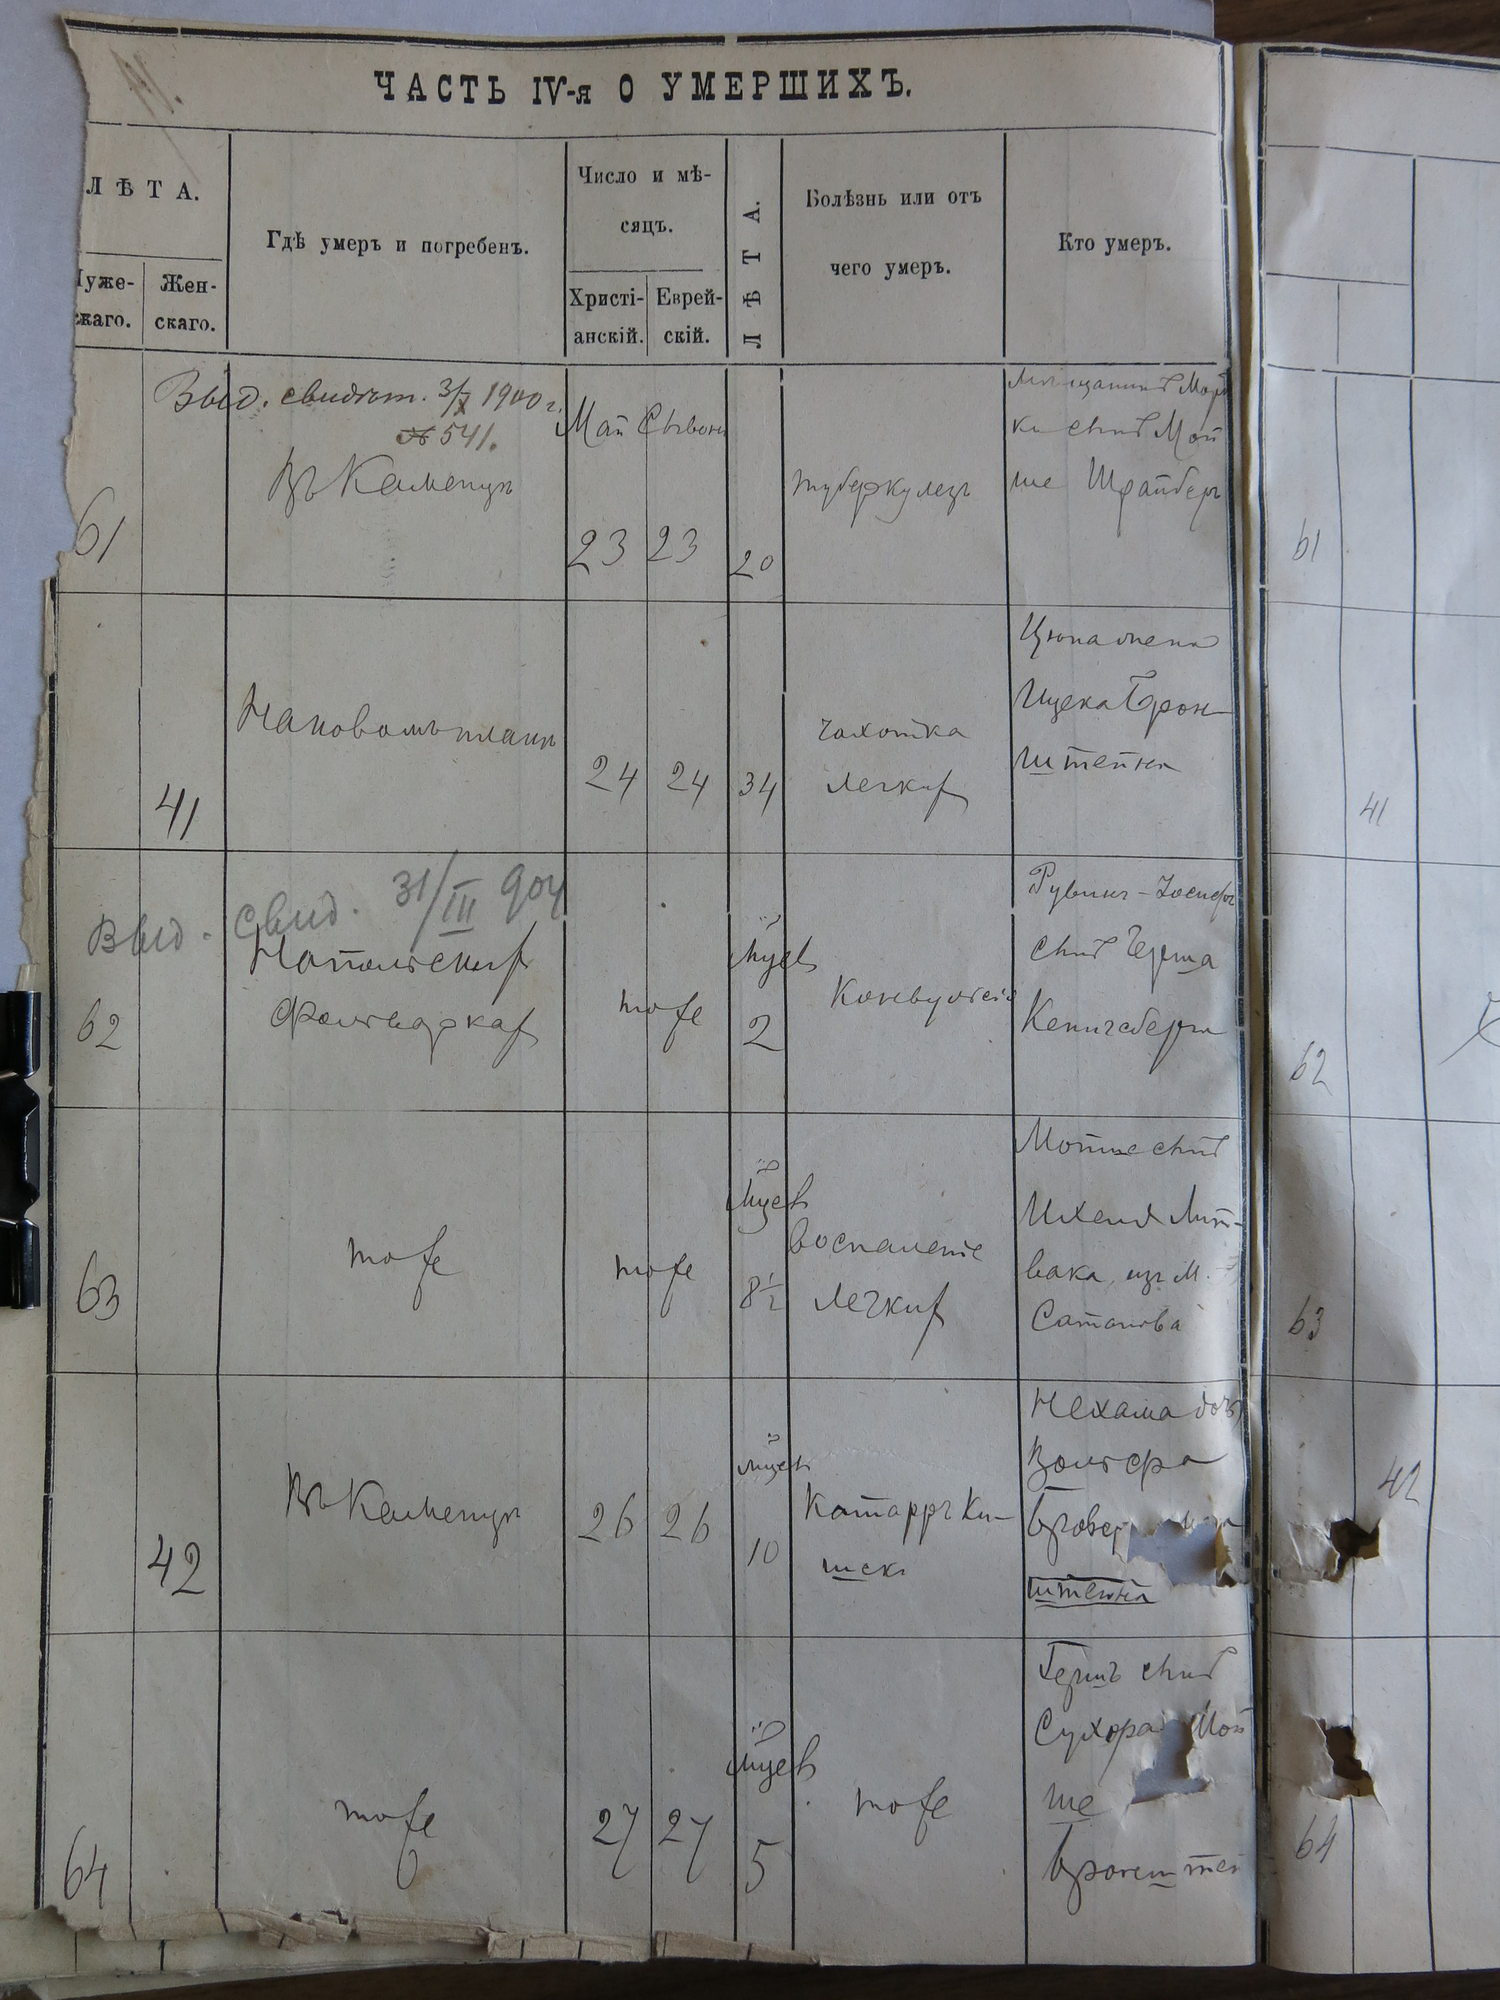 ЧАСТЬ IV-я О УМЕРШИХЪ.
ЛѢТА.
Муже-
скаго.
Жен-
скаго.
Гдѣ умеръ и погребенъ.
Число и мѣ-
сяцъ.
Христі-
анскій.
Еврей-
скій.
ЛѢТА.
Болѣзнь или отъ
чего умеръ.
Кто умеръ.
Выд. свидѣт. 3/X 1900 г.
№ 541.
61
Въ Каменцѣ
Май
23
23
20
туберкулезъ
Мѣщанинъ
сынъ Мой
ше Шрайберъ
61
41
На новомъ планѣ
24
24
34
чахотка
легкихъ
жена
Ицека Брон-
штейна
41
Выд. свид. 31/III 904
62
фольваркахъ
тоже
мѣсяцев
2
Конвульсія
Рувинъ-Іосифъ
сынъ Герша
Кенигсберга
62
63
тоже
тоже
мѣсяцев
8½
воспаленіе
легкихъ
сынъ
Михеля Лит-
вака, изъ м.
Сатанова
63
42
Въ Каменцѣ
26
26
10
Катарръ Ки-
шекъ
Нехама дочь
Вольфа
штейна
42
64
тоже
27
27
5
тоже
Гершъ сынъ
Мой
ше
Бронштей
64